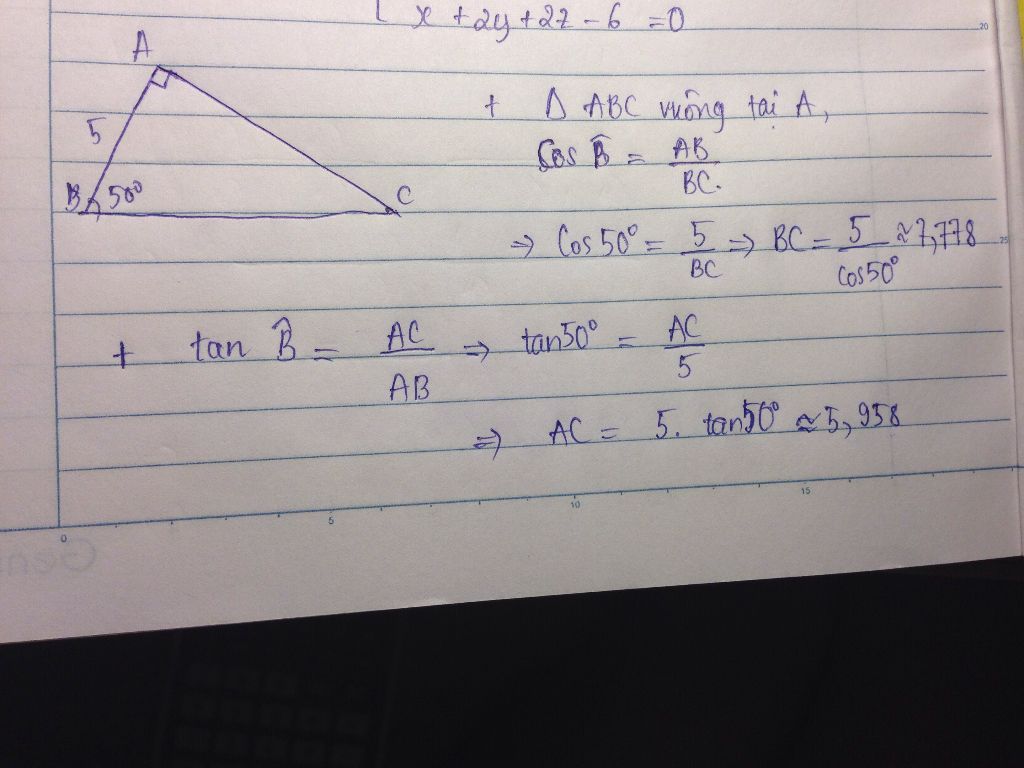 x + 2y + 2z - 6 = 0
A
5
B 50° C
+ Δ ABC vuông tại A,
Cos B̂ = AB/BC.
⇒ Cos 50° = 5/BC ⇒ BC = 5/cos50° ≈ 7,778
+ tan B̂ = AC/AB ⇒ tan50° = AC/5
⇒ AC = 5. tan50° ≈ 5,958
0 5 10 15
20
25